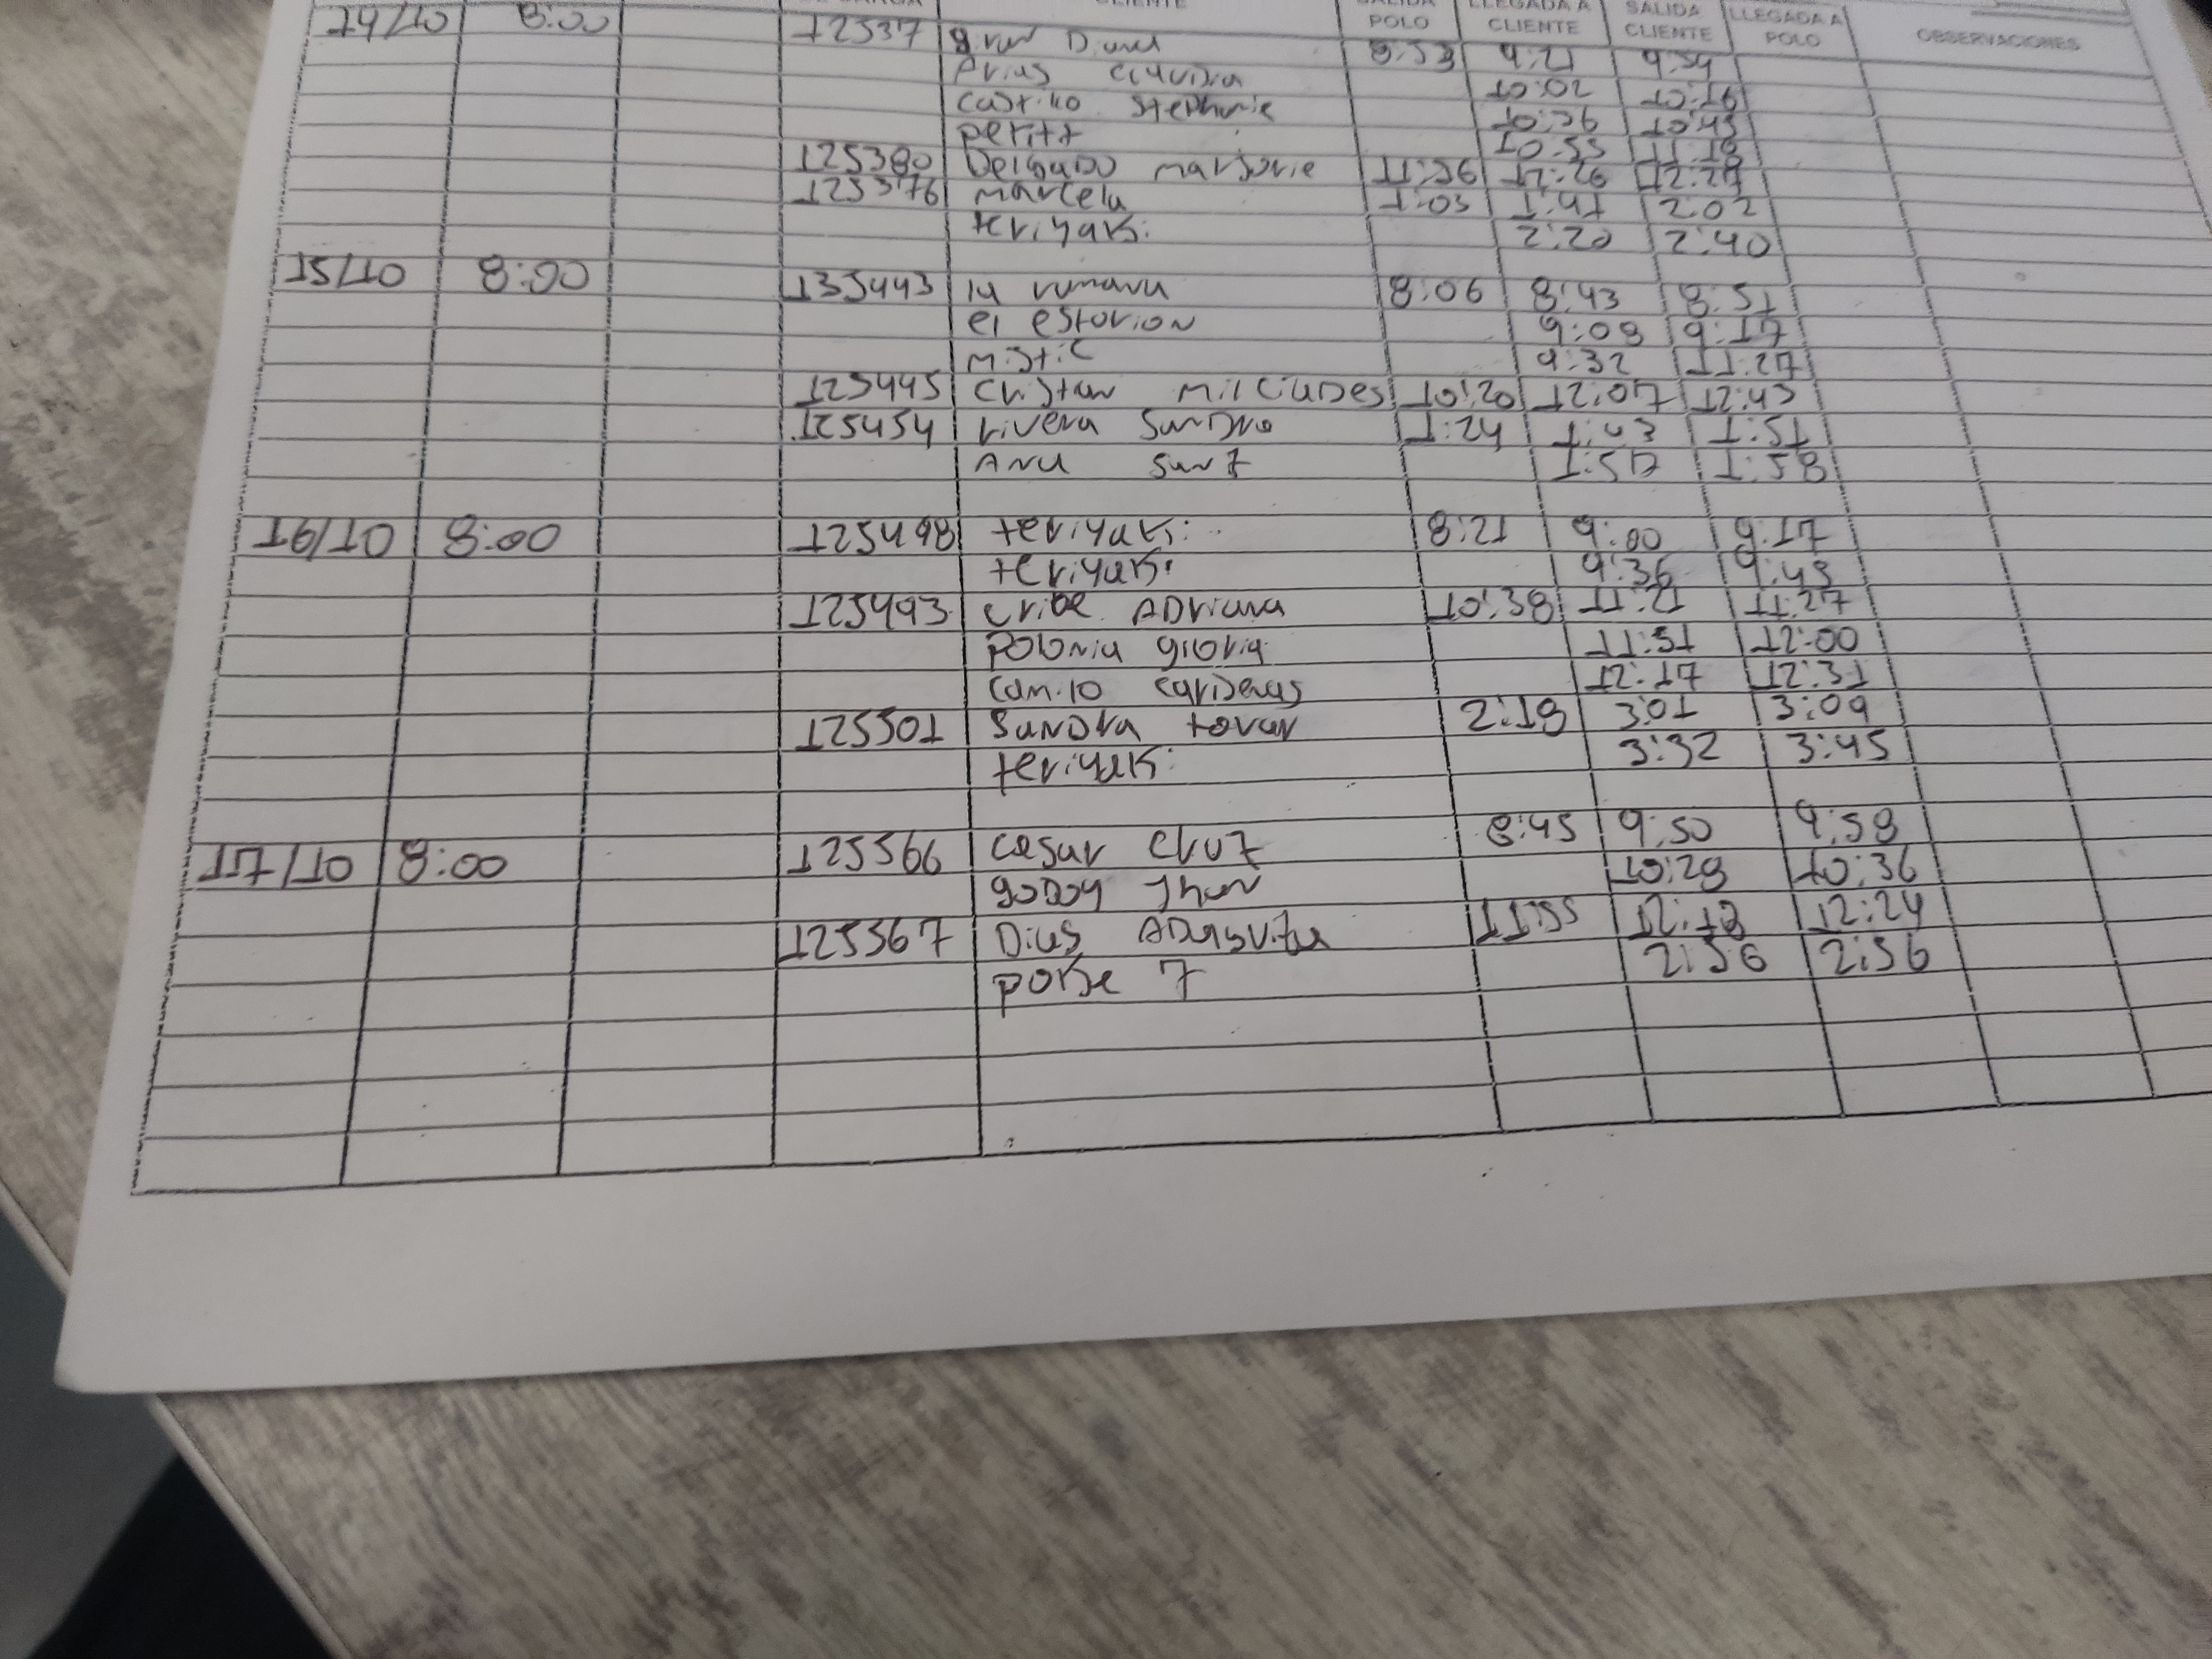 CLIENTE SALIDA POLO LLEGADA A CLIENTE SALIDA CLIENTE LLEGADA A POLO OBSERVACIONES
14/10 8:00 12537 Diana 8:53 9:21 9:54
Arias Claudia 10:02 10:16
Castillo Stephanie 10:26 10:43
peritt 10:55 11:18
125380 Delgado marjorie 11:56 12:26 12:29
125376 marcela 1:03 1:41 2:02
teriyaki 2:20 2:40
15/10 8:00 135443 la rumana 8:06 8:43 8:51
el estorion 9:09 9:17
mistic 9:32 11:27
125445 Cristan Milciades 10:20 12:07 12:43
125454 rivera Sandra 1:24 1:43 1:51
Ana Sanz 1:57 1:58
16/10 8:00 125498 teriyaki 8:21 9:00 9:17
teriyaki 9:36 9:45
125493 Uribe ADriana 10:38 11:21 11:27
Polonia gloria 11:51 12:00
Camilo carDenas 12:17 12:31
125501 SanDra tovar 2:18 3:01 3:09
teriyaki 3:32 3:45
17/10 8:00 125566 Cesar Cruz 8:45 9:50 9:58
goDoy Jhon 10:28 10:36
125567 Dias 11:55 12:18 12:24
poke 7 2:56 2:56